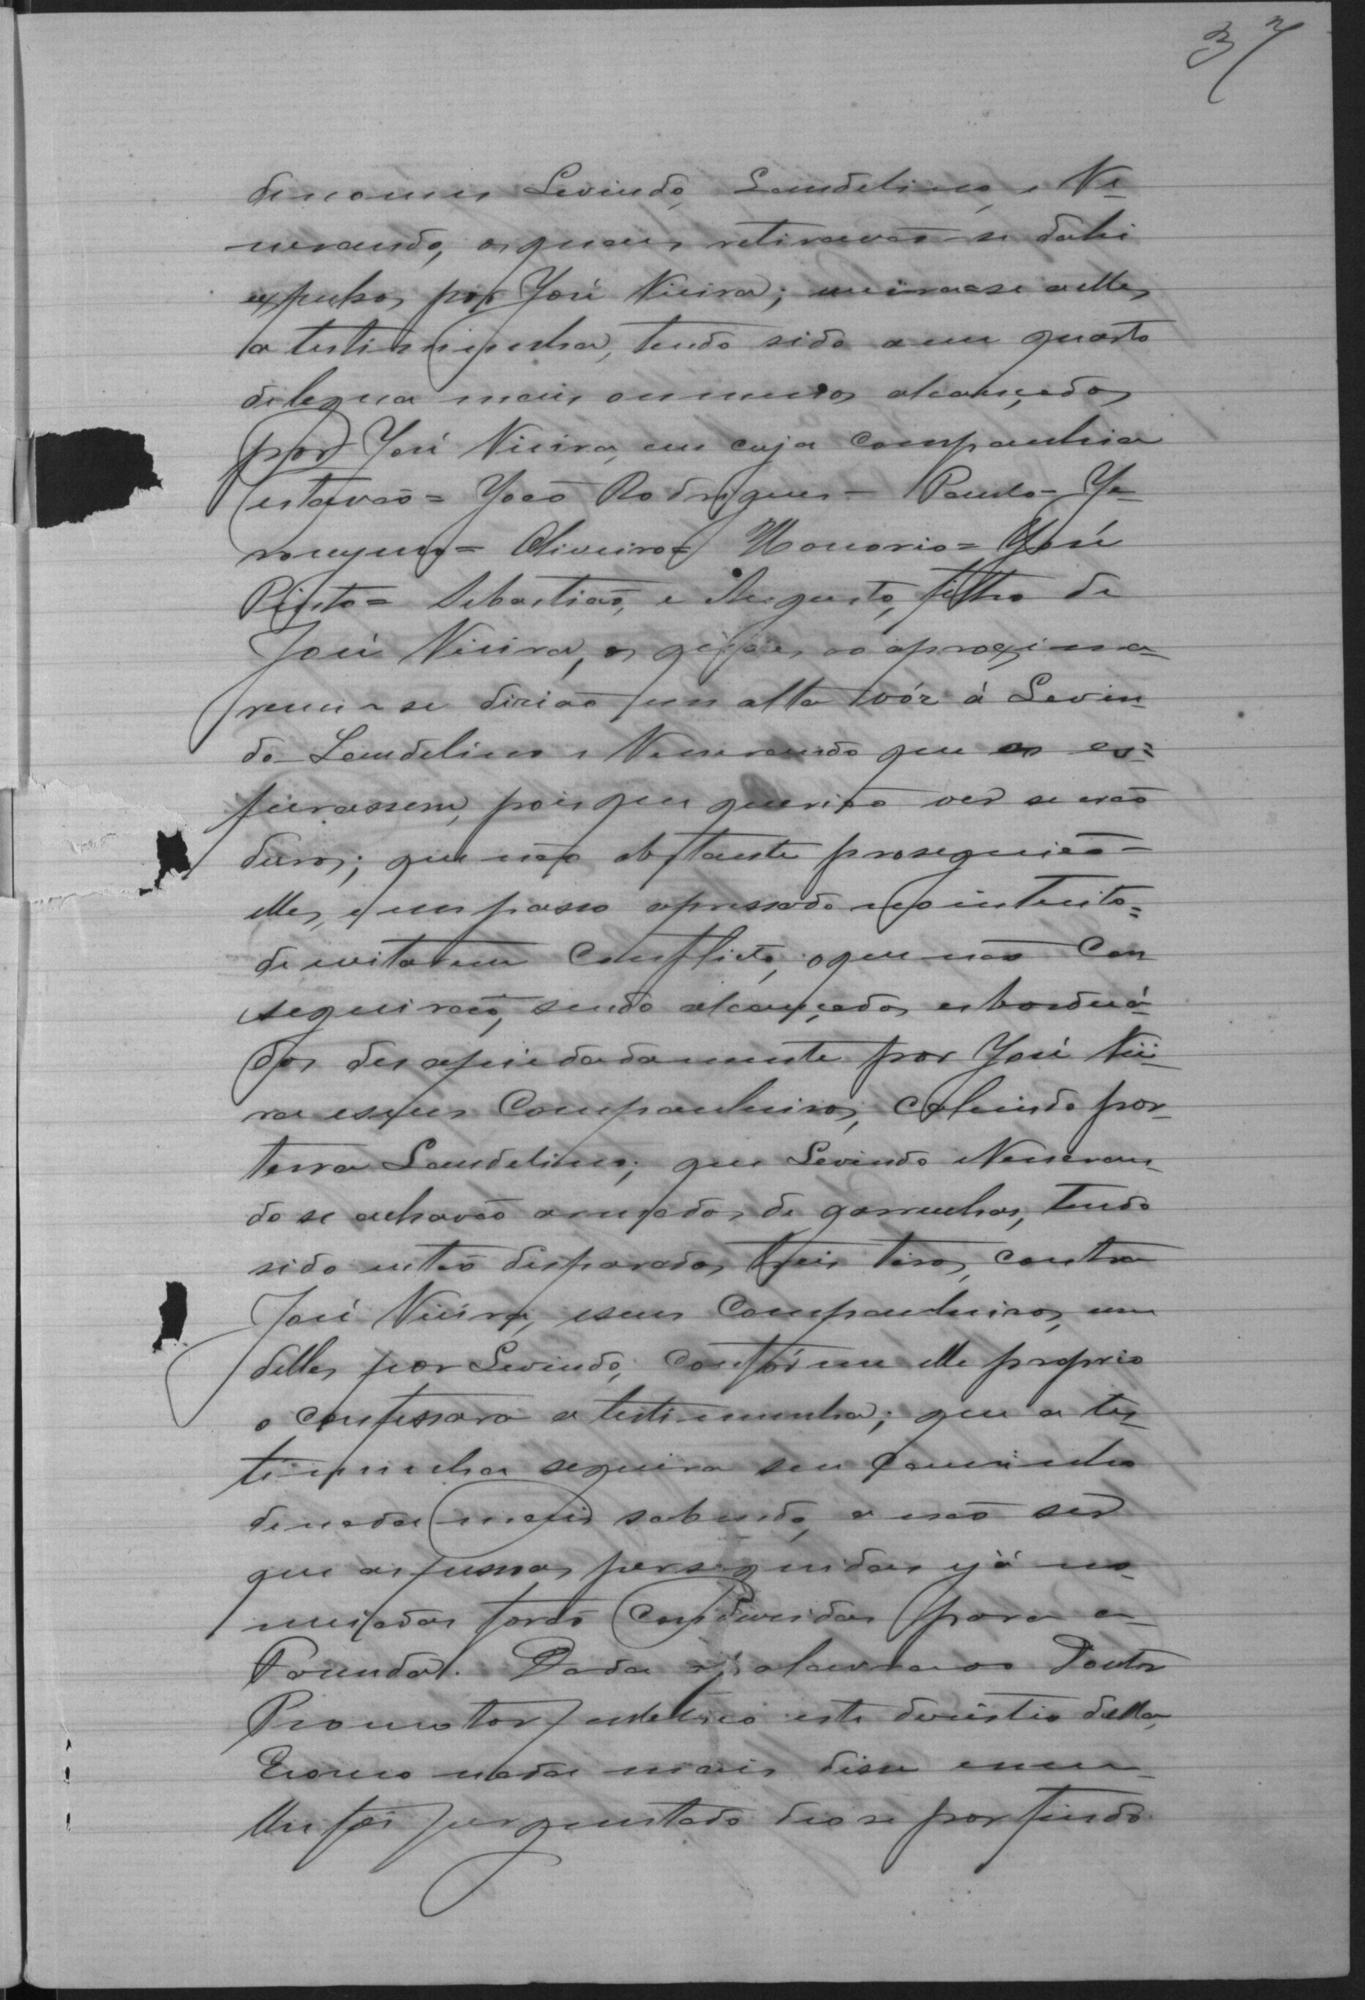 37
de nomes Levindo, Laudelino, e Ve-
nerando, os quaes retiravão-se dahi
expulsos por José Vieira; unira-se a elles
a testimunha, tendo sido a um quarto
de legua mais ou menos alcançados
por José Vieira, em cuja companhia
estavão = João Rodrigues = Paulo = Je-
ronymo = Oliveira = Honorio = José
Pinto = Sebastião, e Augusto, filho de
José Vieira, os quaes, ao aproxima-
rem-se dirião em alta vóz á Levin-
do Laudelino e Venerando que os es=
perassem, pois que querião ver se erão
duros; que não obstante proseguirão
elles, em passo apressado no intuito=
de evitarem conflicto, o que não con
seguirão, sendo alcançados e bordoá-
dos desapiedadamente por José Viei-
ra e seus companheiros, cahindo por
terra Laudelino; que Levindo e Veneran-
do se achavão armados de garruchas, tendo
sido então disparados treis tiros, contra
José Vieira, e seus companheiros, um
delles por Levindo, confórme elle proprio
o confessara a testimunha; que a tes-
timunha seguira seu caminho
de nada mais sabendo, a não ser
que as pessoas perseguidas e já no-
meiadas forão conduzidas para a
Pounda. Dada a palavra ao Doutor
Promotor, por elle não este desistio della,
E como nada mais disse e nem
lhe foi perguntado deo-se por findo